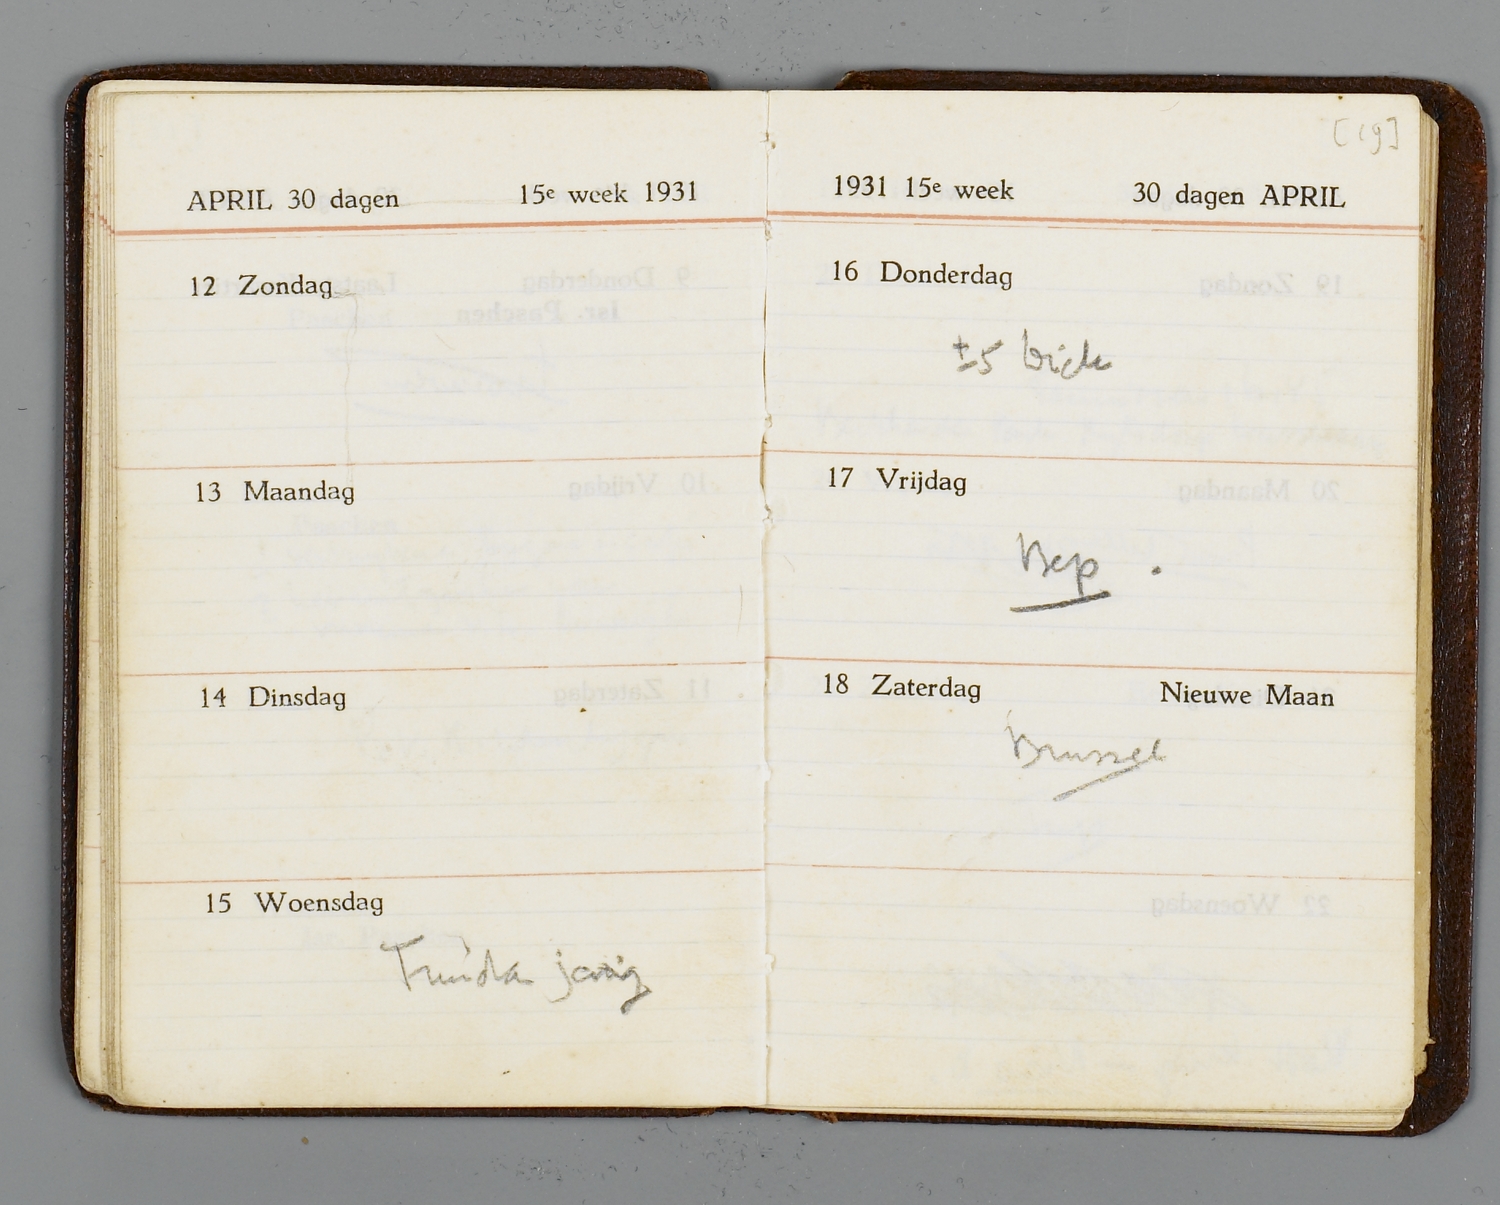 APRIL 30 dagen 15e week 1931
12 Zondag
13 Maandag
14 Dinsdag
15 Woensdag
jarig
[19]
1931 15e week 30 dagen APRIL
16 Donderdag
±5
17 Vrijdag
Bep .
18 Zaterdag Nieuwe Maan
Brussel